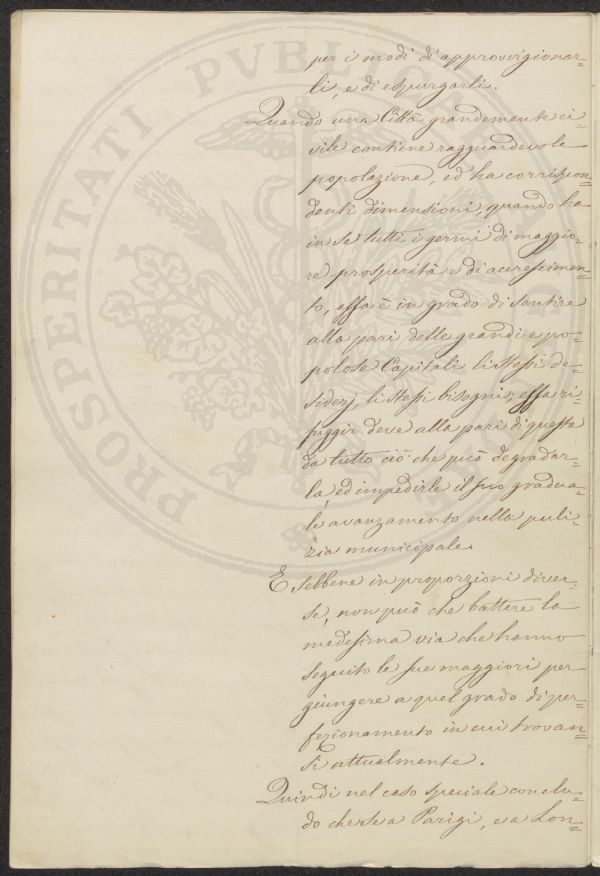 per i modi di approvvigionar=
li, e di espurgarli.
Quando una Città grandemente ci=
vile contiene ragguardevole
popolazione, ed ha corrispon=
denti dimensioni, quando ha
in se tutti i germi di maggio=
re prosperità e di accrescimen=
to, essa è in grado di sentire
alla pari delle grandi e po=
polose Capitali li stessi de=
siderj, li stessi bisogni; essa ri=
fuggir deve alla pari di queste
da tutto ciò che può degradar=
la, ed impedirle il suo gradua=
le avanzamento nella puli=
zia municipale.
E sebbene in proporzioni diver=
se, non può che battere la
medesima via che hanno
seguito le sue maggiori per
giungere a quel grado di per=
fezionamento in cui trovan=
si attualmente.
Quindi nel caso speciale conclu=
do che se a Parigi, e a Lon=
PROSPERITATI PVBLICAE